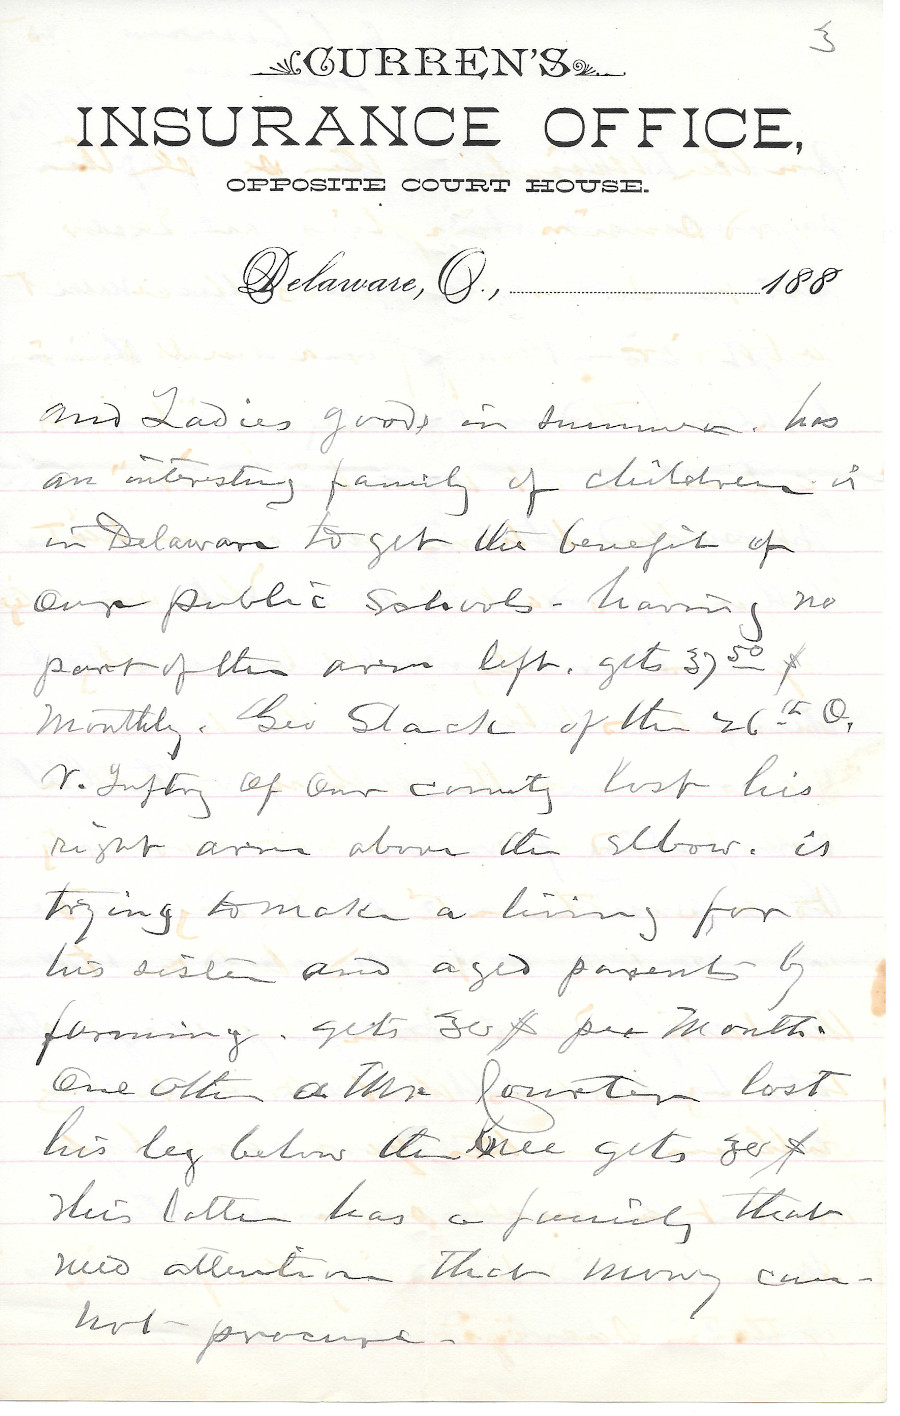 3
CURREN'S
INSURANCE OFFICE,
OPPOSITE COURT HOUSE.
Delaware, O., 188
and Ladies goods in summer. has
an interesting family of children. is
in Delaware to get the benefit of
our public Schools - having no
part of the arm left. gets 37 50 $
Monthly. Geo Slack of the 26th O.
V. Inftry of our county lost his
right arm above the elbow. is
trying to make a living for
his sister and aged parents by
farming. gets 30 $ per Month.
One other a Mr lost
his leg below the Knee gets 30 $
This latter has a family that
need attention that money can-
not procure.